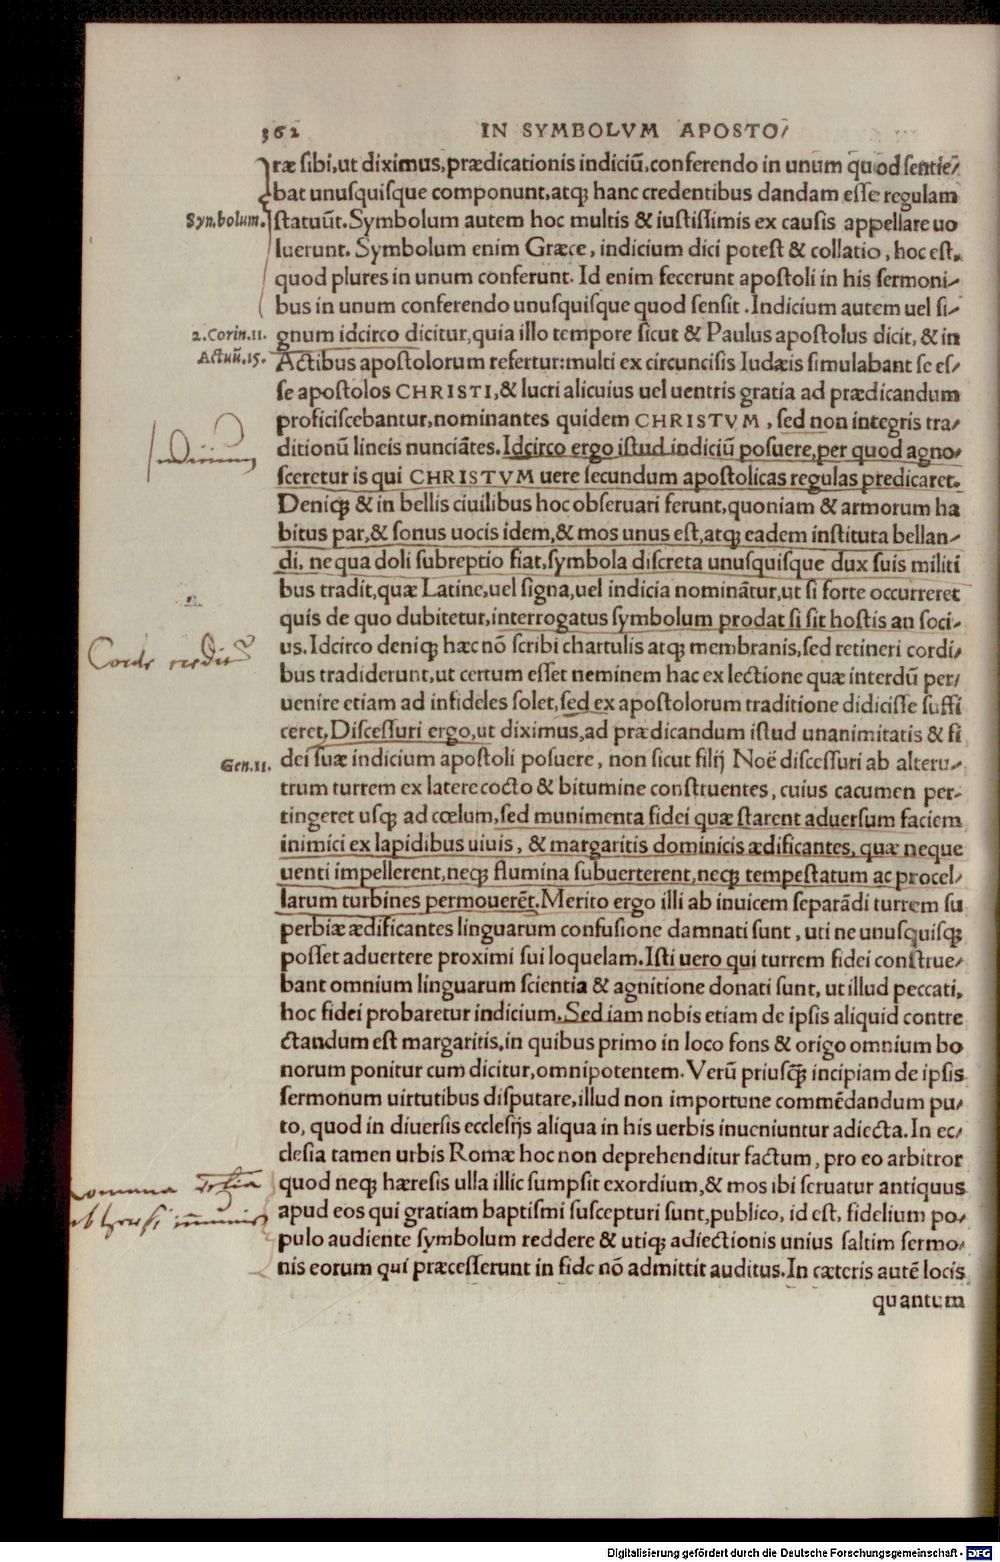 362 IN SYMBOLVM APOSTO/
ræ sibi,ut diximus,prædicationis indiciū.conferendo in unum quod sentie/
bat unusquisque componunt,atq; hanc credentibus dandam esse regulam
Symbolum.
statuūt.Symbolum autem hoc multis & iustissimis ex causis appellare uo
luerunt. Symbolum enim Græce, indicium dici potest & collatio, hoc est.
quod plures in unum conferunt. Id enim fecerunt apostoli in his sermoni/
bus in unum conferendo unusquisque quod sensit. Indicium autem uel si/
2.Corin.11.
gnum idcirco dicitur,quia illo tempore sicut & Paulus apostolus dicit, & in
Actuū.15.
Actibus apostolorum refertur:multi ex circuncisis Iudæis simulabant se es/
se apostolos CHRISTI,& lucri alicuius uel uentris gratia ad prædicandum
proficiscebantur,nominantes quidem CHRISTVM, sed non integris tra/
ditionū lineis nunciātes.Idcirco ergo istud indiciū posuere,per quod agno/
Indicium
sceretur is qui CHRISTVM uere secundum apostolicas regulas predicaret.
Deniq; & in bellis ciuilibus hoc obseruari ferunt,quoniam & armorum ha
bitus par,& sonus uocis idem,& mos unus est,atq; eadem instituta bellan/
di, ne qua doli subreptio fiat,symbola discreta unusquisque dux suis militi
bus tradit,quæ Latine,uel signa,uel indicia nominātur,ut si forte occurreret
quis de quo dubitetur,interrogatus symbolum prodat si sit hostis an soci/
us.Idcirco deniq; hæc nō scribi chartulis atq; membranis,sed retineri cordi/
Corde creditur
bus tradiderunt,ut certum esset neminem hac ex lectione quæ interdū per/
uenire etiam ad infideles solet,sed ex apostolorum traditione didicisse suffi
ceret,Discessuri ergo,ut diximus,ad prædicandum istud unanimitatis & fi
Gen.11.
dei suæ indicium apostoli posuere, non sicut filij Noë discessuri ab alteru/
trum turrem ex latere cocto & bitumine construentes, cuius cacumen per-
tingeret usq; ad cœlum,sed munimenta fidei quæ starent aduersum faciem
inimici ex lapidibus uiuis, & margaritis dominicis ædificantes, quæ neque
uenti impellerent,neq; flumina subuerterent,neq; tempestatum ac procel/
larum turbines permouerēt.Merito ergo illi ab inuicem separādi turrem su
perbiæ ædificantes linguarum confusione damnati sunt, uti ne unusquisq;
posset aduertere proximi sui loquelam.Isti uero qui turrem fidei construe/
bant omnium linguarum scientia & agnitione donati sunt, ut illud peccati,
hoc fidei probaretur indicium.Sed iam nobis etiam de ipsis aliquid contre
ctandum est margaritis,in quibus primo in loco fons & origo omnium bo
norum ponitur cum dicitur,omnipotentem.Verū priusq̄; incipiam de ipsis
sermonum uirtutibus disputare,illud non importune commēdandum pu/
to, quod in diuersis ecclesijs aliqua in his uerbis inueniuntur adiecta. In ec/
clesia tamen urbis Romæ hoc non deprehenditur factum, pro eo arbitror
quod neq; hæresis ulla illic sumpsit exordium,& mos ibi seruatur antiquus
apud eos qui gratiam baptismi suscepturi sunt,publico, id est, fidelium po/
pulo audiente symbolum reddere & utiq; adiectionis unius saltim sermo/
nis eorum qui præcesserunt in fide nō admittit auditus.In cæteris autē locis
quantum
Digitalisierung gefördert durch die Deutsche Forschungsgemeinschaft - DFG